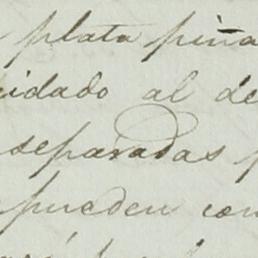 plata piña
cuidado al de
separadas p
pueden con